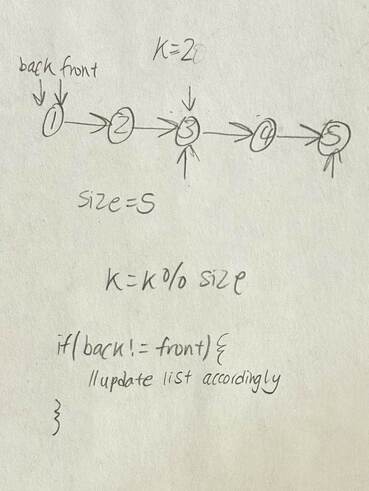 K=2
back front
1 2 3 4 5
size=5
K=K% size
if(back!= front){
//update list accordingly
}